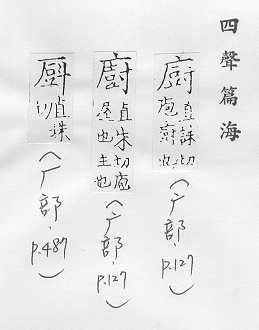 四聲篇海
廚 直誅切
庖廚也
(广部, p.127)
廚 直朱切庵
屋也主也
(广部, p.127)
厨 直珠
切
(厂部, p.487)